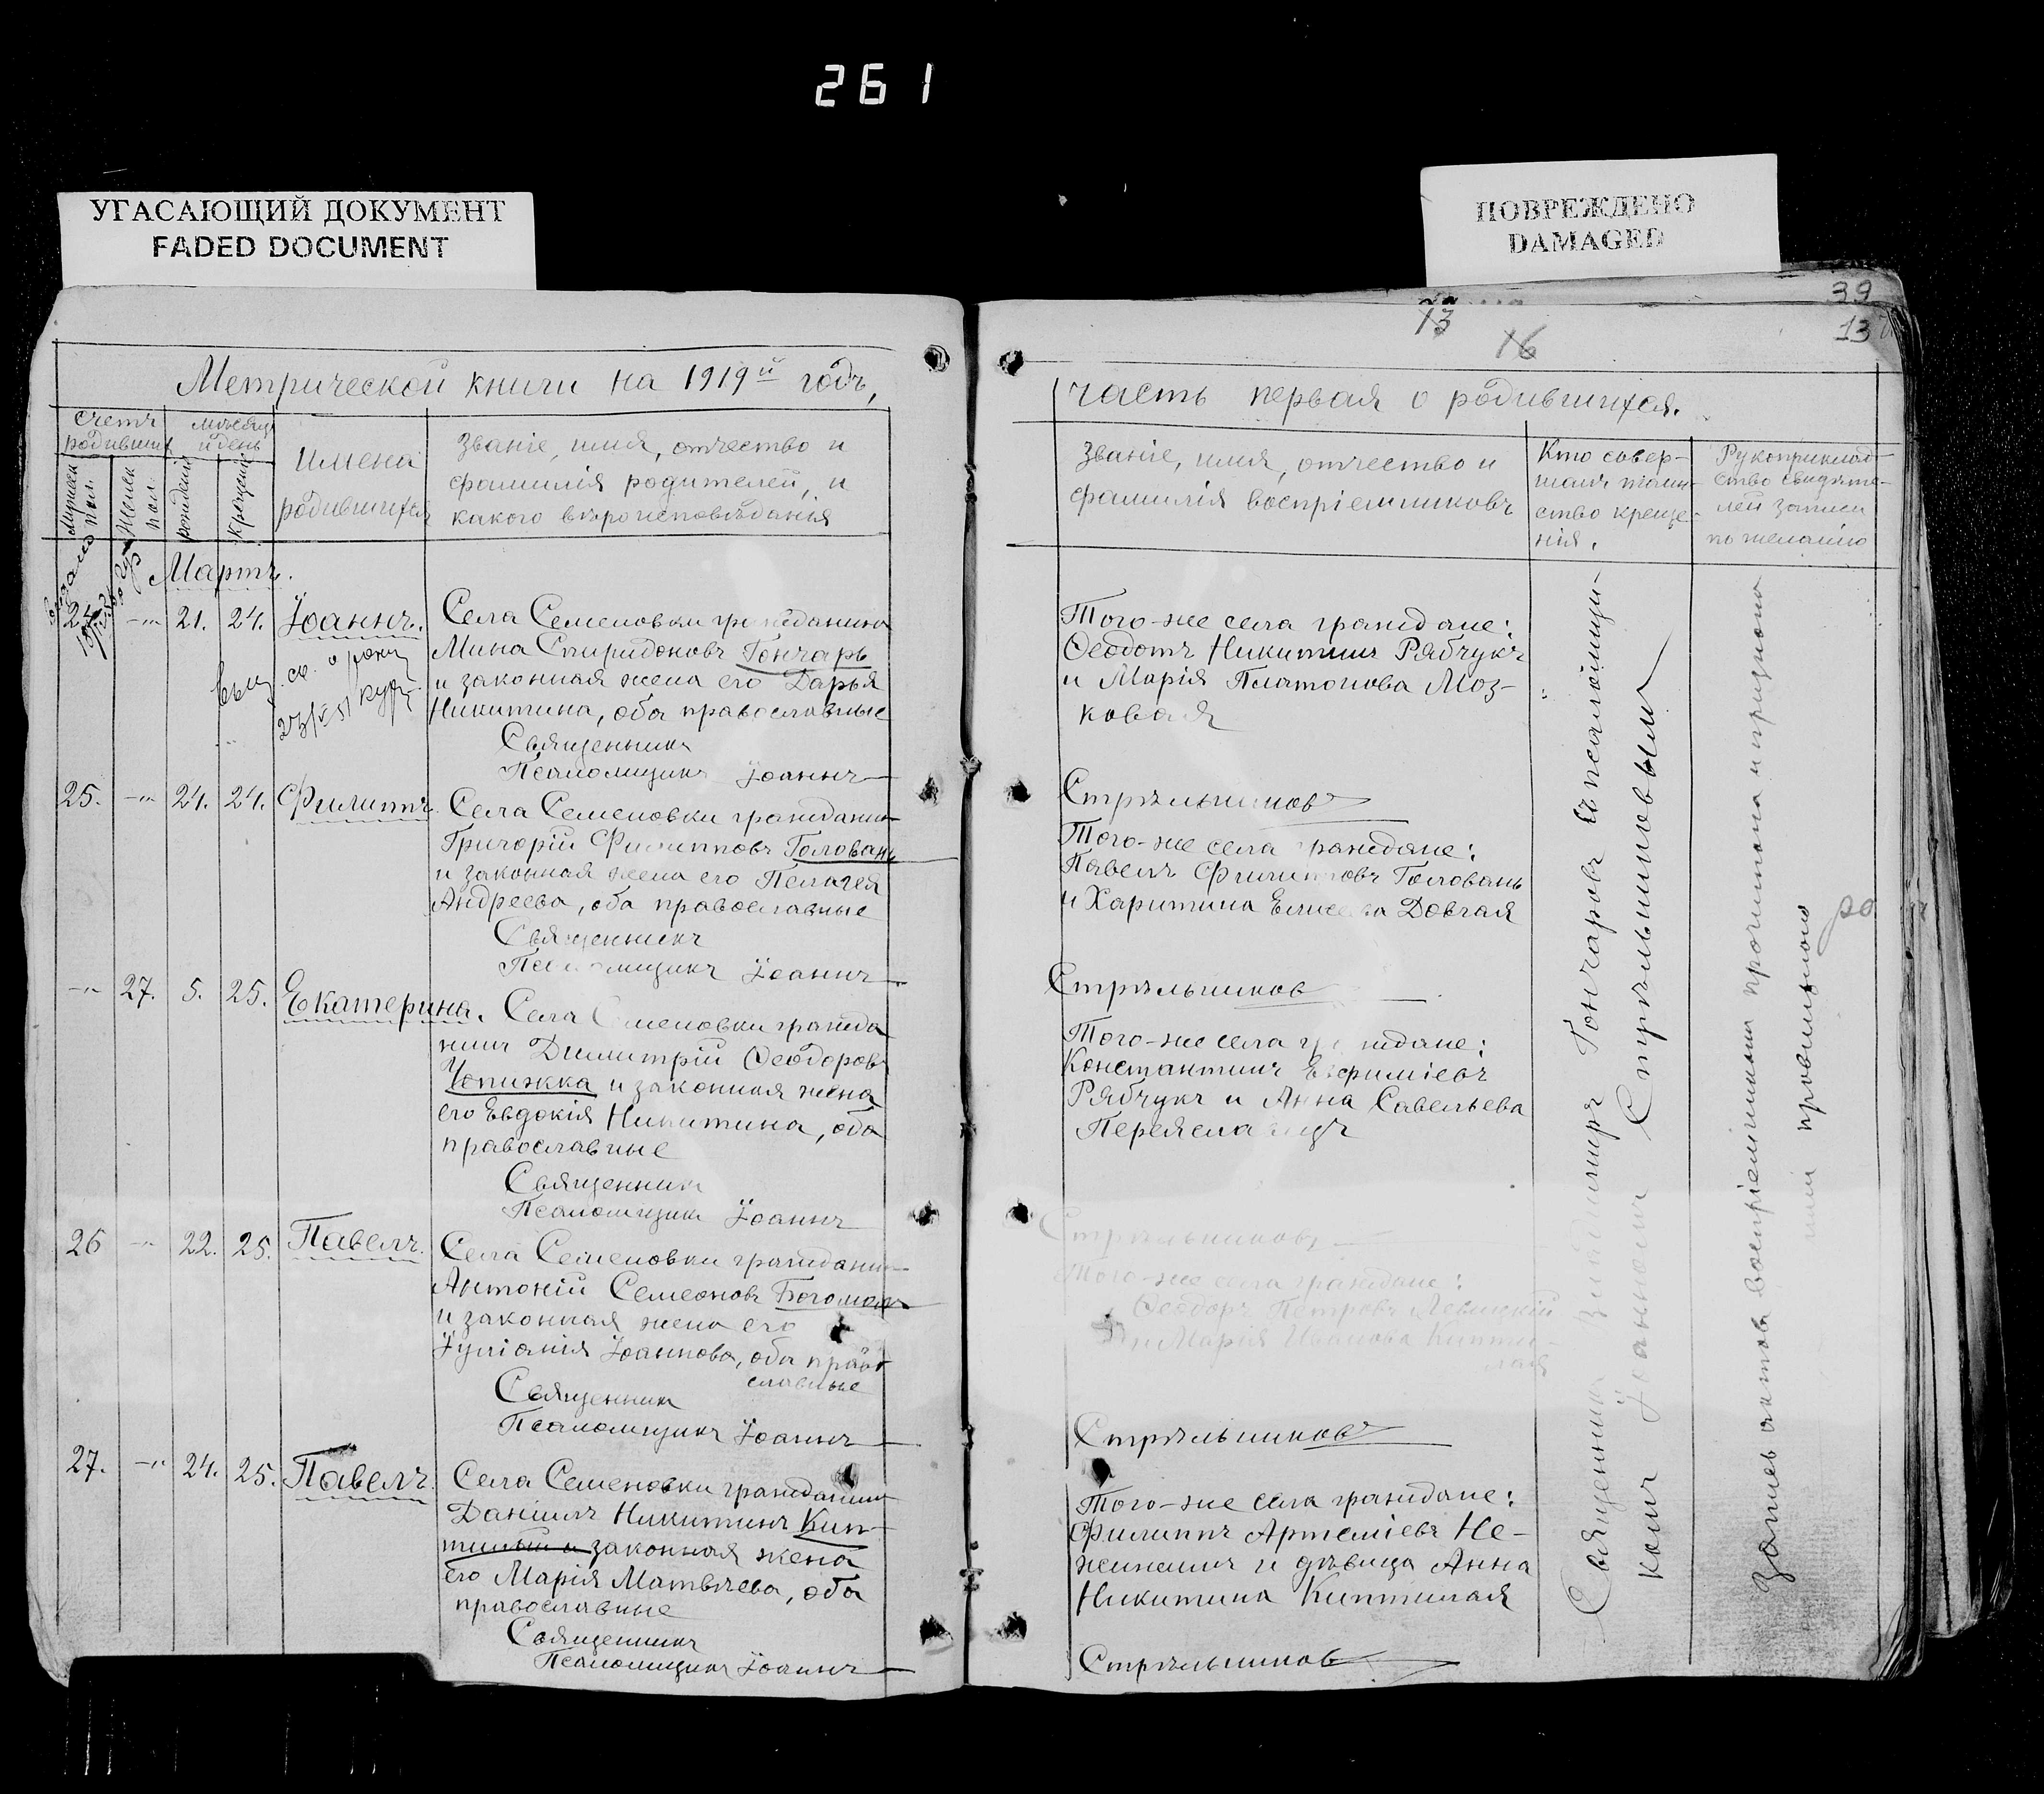 261
УГАСАЮЩИЙ ДОКУМЕНТ
FADED DOCUMENT
ПОВРЕЖДЕНО
DAMAGED
39
13
16
13
Метрической книги на 1919й годъ,
счетъ родившихъ
мужеск пол.
женск пол.
мѣсяцъ и день
рожденія
крещенія
Имена
родившихся
Званіе, имя, отчество и
фамилія родителей, и
какого вѣроисповѣданья
Мартъ.
24. -"- 21. 24. Іоаннъ.
Села Семеновки гражданинъ
Мина Спиридоновъ Гончаръ
и законная жена его Дарья
Никитина, оба православные
Священникъ
Псаломщикъ Іоаннъ
25. -"- 24. 24. Филиппъ.
Села Семеновки гражданинъ
Григорій Филипповъ Головань
и законная жена его Пелагея
Андреева, оба православные
Священникъ
Псаломщикъ Іоаннъ
-"- 27. 5. 25. Екатерина.
Села Семеновки гражда
нинъ Димитрій Ѳеодоровъ
Чепижка и законная жена
его Евдокія Никитина, оба
православные
Священникъ
Псаломщикъ Іоаннъ
26 -"- 22. 25. Павелъ.
Села Семеновки гражданинъ
Антоній Семеоновъ Богомолъ
и законная жена его
Іуліанія Іоаннова, оба право
славные
Священникъ
Псаломщикъ Іоаннъ
27. -"- 24. 25. Павелъ.
Села Семеновки гражданинъ
Даніилъ Никитинъ Кип-
законная жена
его Марія Матвѣева, оба
православные
Священникъ
Псаломщикъ Іоаннъ
часть первая о родившихся.
Званіе, имя, отчество и
фамилія воспріемниковъ
Кто совер-
шалъ таин-
ство креще-
нія.
Рукоприклад-
ство свидѣте-
лей записи
по желанію
Того-же села граждане:
Ѳеодотъ Никитинъ Рябчукъ
и Марія Платонова Моз-
ковая
Стрѣльниковъ
Того-же села граждане:
Павелъ Филипповъ Головань
и Харитина Елисеева Довгая
Стрѣльниковъ
Того-же села граждане:
Константинъ Евфиміевъ
Рябчукъ и Анна Савельева
Переяславецъ
Стрѣльниковъ
Того-же села граждане:
Ѳеодоръ Петровъ Левицкій
и Марія Иванова Кипти-
лая
Стрѣльниковъ
Того-же села граждане:
Филиппъ Артеміевъ Не-
жинецъ и дѣвица Анна
Никитина Киптилая
Стрѣльниковъ
Священникъ Владимиръ Гончаровъ съ псаломщи-
комъ Іоанномъ Стрѣльниковымъ
Запись актовъ воспріемниками прочитана и признана
ими правильною